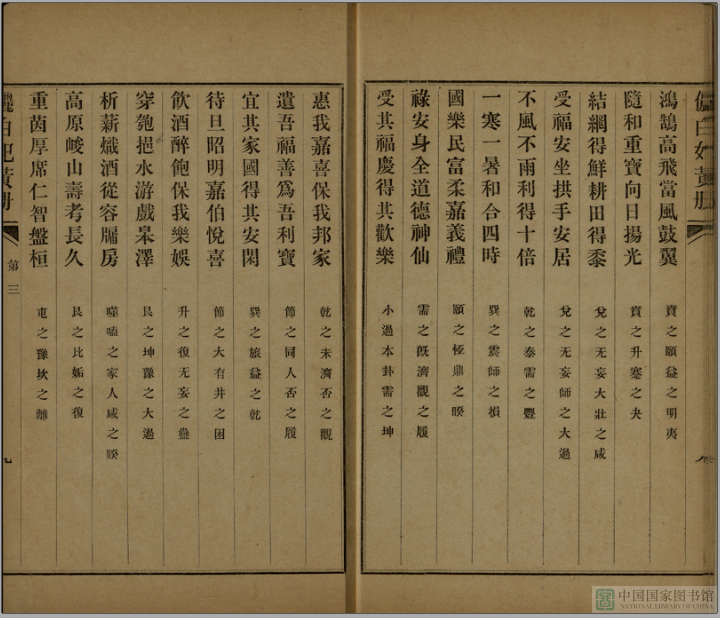 鴻鵠高飛當風鼓翼 賁之頤益之明夷
隨和重寶向日揚光 賁之升蹇之夬
結網得鮮耕田得黍 兌之无妄大壯之咸
受福安坐拱手安居 兌之无妄師之大過
不風不雨利得十倍 乾之泰需之豐
一寒一暑和合四時 巽之震師之損
國樂民富柔嘉義禮 頤之恆鼎之睽
祿安身全道德神仙 需之旣濟觀之履
受其福慶得其歡樂 小過本卦需之坤
惠我嘉喜保我邦家 乾之未濟否之觀
遺吾福善爲吾利寶 節之同人否之履
宜其家國得其安閑 巽之旅益之乾
待旦昭明嘉伯悅喜 節之大有井之困
飲酒醉飽保我樂娛 升之復无妄之蠱
穿匏挹水游戲皋澤 艮之坤豫之大過
析薪熾酒從容牖房 噬嗑之家人咸之睽
高原峻山壽考長久 艮之比姤之復
重茵厚席仁智盤桓 屯之豫坎之離
第三
九
中国国家图书馆
NATIONAL LIBRARY OF CHINA